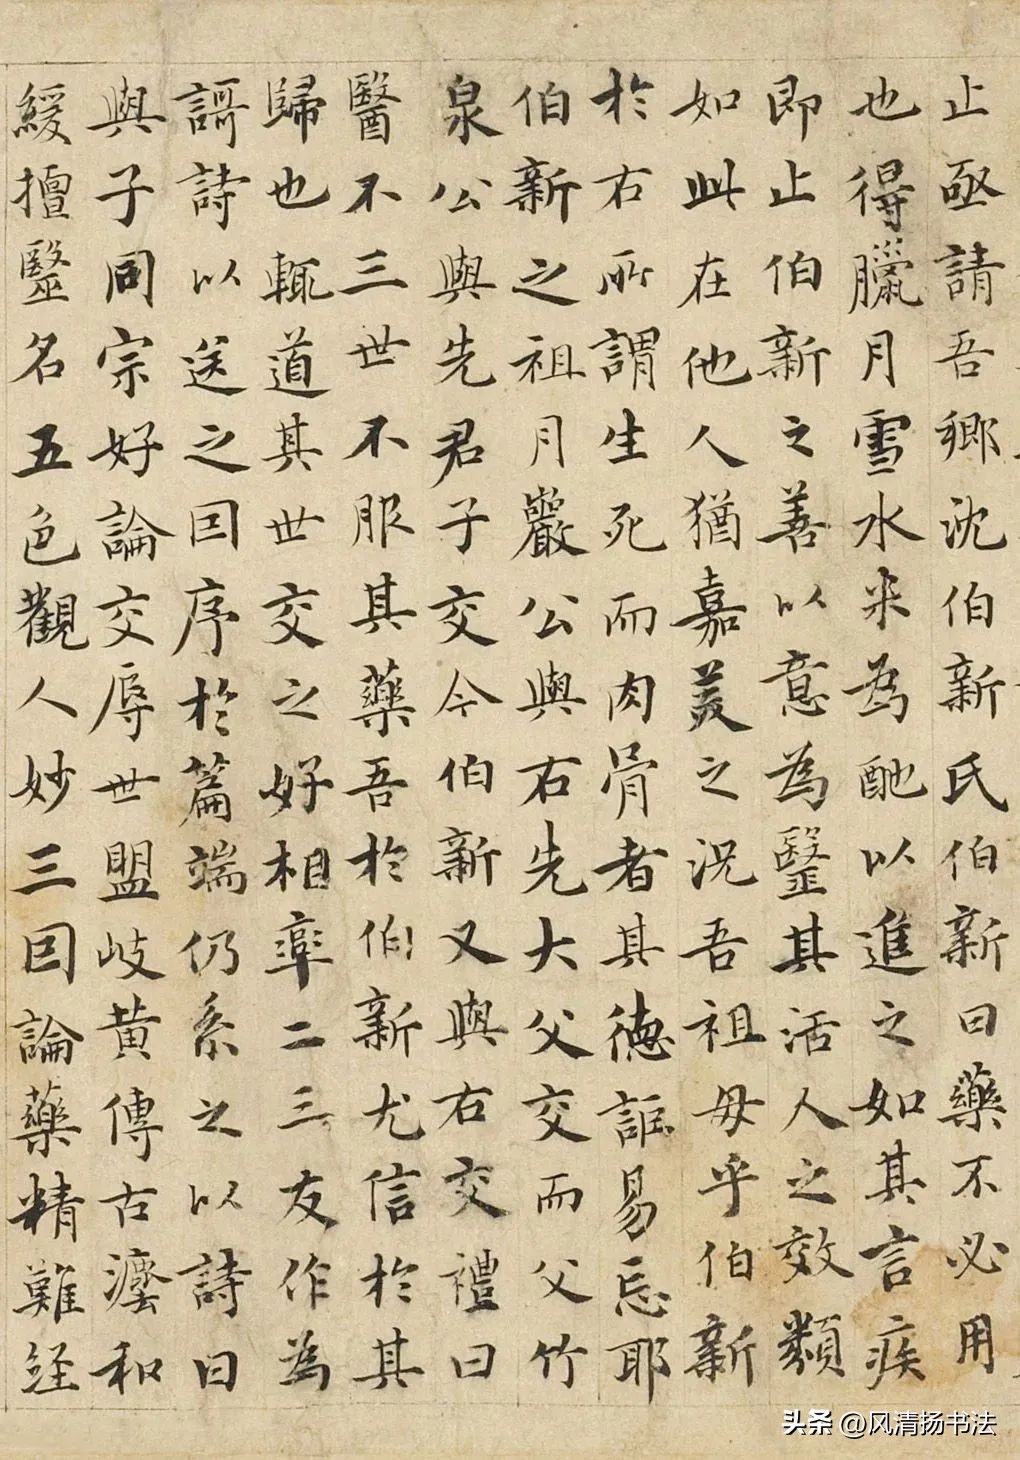 止亟請吾鄉沈伯新氏伯新曰藥不必用
也得臘月雪水米為酏以進之如其言疾
即止伯新之善以意為毉其活人之效類
如此在他人猶嘉美之況吾祖母乎伯新
於右所謂生死而肉骨者其德詎易忘耶
伯新之祖月巖公與右先大父交而父竹
泉公與先君子交今伯新又與右交禮曰
醫不三世不服其藥吾於伯新尤信於其
歸也輒道其世交之好相率二三友作為
謌詩以送之因序於篇端仍系之以詩曰
與子同宗好論交辱世盟岐黄傳古瀍和
緩擅毉名五色觀人妙三因論藥精難経
头条 @风清扬书法